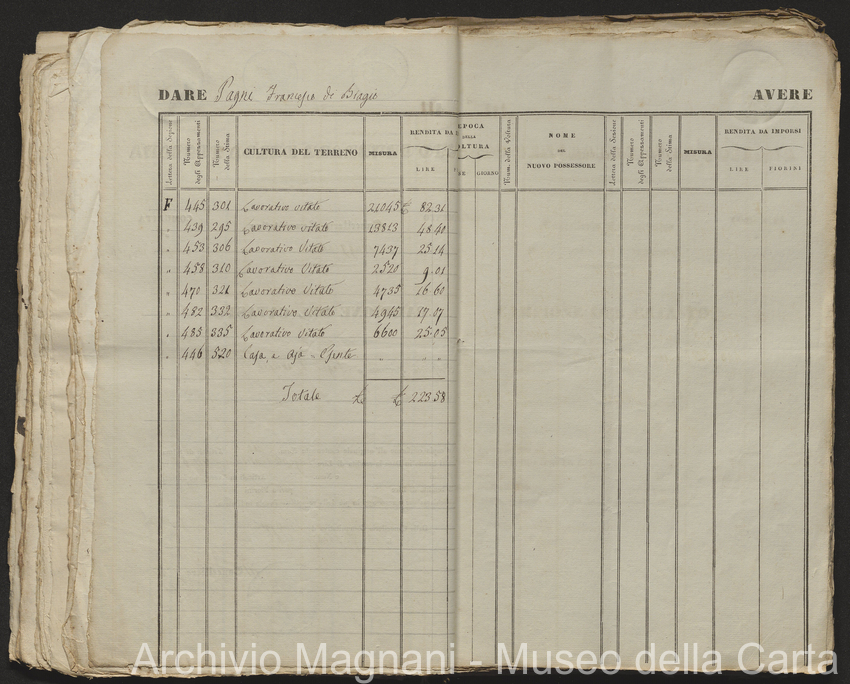 DARE Pagni Francesco di Biagio AVERE
Lettera della Sezione
Numero degli Appezzamenti
Numero della Stima
CULTURA DEL TERRENO
MISURA
RENDITA DA
LIRE
EPOCA
DELLA
OLTURA
GIORNO
Num. della Voltura
NOME
DEL
NUOVO POSSESSORE
Lettera della Sezione
Numero degli Appezzamenti
Numero della Stima
MISURA
RENDITA DA IMPORSI
LIRE
FIORINI
F 445 301 Lavorativo vitato 21045 £ 82.31
" 439 295 Lavorativo vitato 13813 48.40
" 453 306 Lavorativo Vitato 7437 25.14
" 458 310 Lavorativo Vitato 2520 9.01
" 470 321 Lavorativo Vitato 4735 16.60
" 482 332 Lavorativo Vitato 4945 17.07
" 485 335 Lavorativo Vitato 6600 25.05
" 446 520 Casa, e Aja = Esente " " "
Totale £ £ 223.58
Archivio Magnani - Museo della Carta